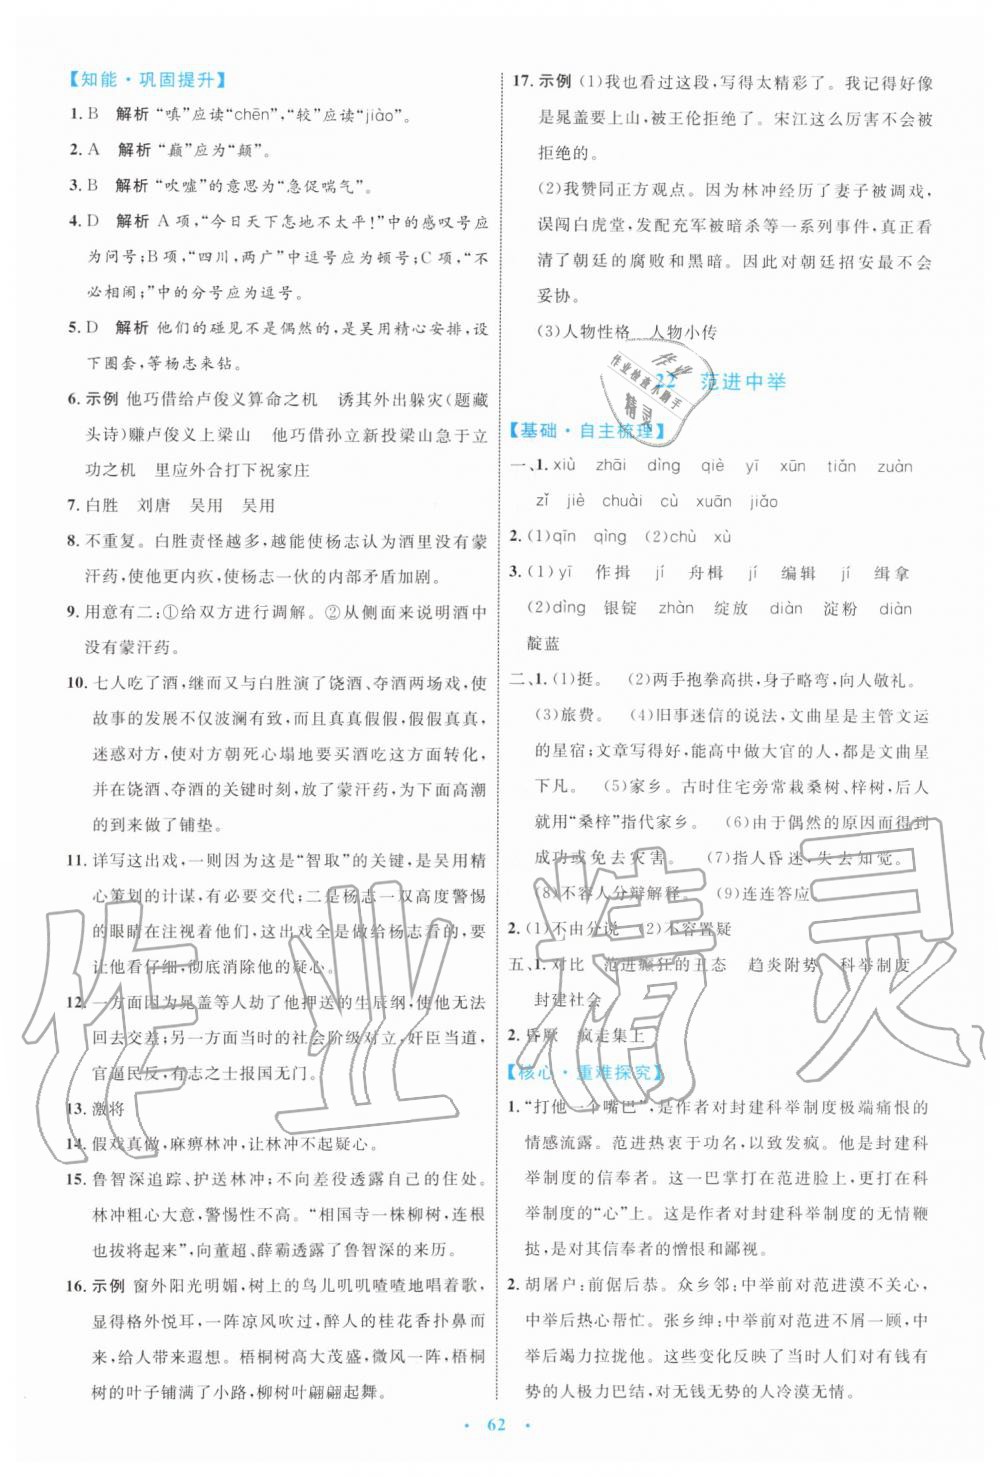 【知能·巩固提升】
1. B 解析 “嗔”应读“chēn”,“较”应读“jiào”。
2. A 解析 “巅”应为“颠”。
3. B 解析 “吹嘘”的意思为“急促喘气”。
4. D 解析 A 项,“今日天下怎地不太平!”中的感叹号应
为问号;B 项,“四川,两广”中逗号应为顿号;C 项,“不
必相闹;”中的分号应为逗号。
5. D 解析 他们的碰见不是偶然的,是吴用精心安排,设
下圈套,等杨志来钻。
6. 示例 他巧借给卢俊义算命之机 诱其外出躲灾(题藏
头诗)赚卢俊义上梁山 他巧借孙立新投梁山急于立
功之机 里应外合打下祝家庄
7. 白胜 刘唐 吴用 吴用
8. 不重复。白胜责怪越多,越能使杨志认为酒里没有蒙
汗药,他更内疚,使杨志一伙的内部矛盾加剧。
9. 用意有二:①给双方进行调解。②从侧面来说明酒中
没有蒙汗药。
10. 七人吃了酒,继而又与白胜演了饶酒、夺酒两场戏,使
故事的发展不仅波澜有致,而且真真假假,假假真真,
迷惑对方,使对方朝死心塌地要买酒吃这方面转化,
并在饶酒、夺酒的关键时刻,放了蒙汗药,为下面高潮
的到来做了铺垫。
11. 详写这出戏,一则因为这是“智取”的关键,是吴用精
心策划的计谋,有必要交代;二是杨志一双高度警惕
的眼睛在注视着他们,这出戏全是做给杨志看的,要
让他看仔细,彻底消除他的疑心。
12. 一方面因为晁盖等人劫了他押送的生辰纲,使他无法
回去交差;另一方面当时的社会阶级对立,奸臣当道,
官逼民反,有志之士报国无门。
13. 激将
14. 假戏真做,麻痹林冲,让林冲不起疑心。
15. 鲁智深追踪、护送林冲;不向差役透露自己的住处。
林冲粗心大意,警惕性不高。“相国寺一株柳树,连根
也拔将起来”,向董超、薛霸透露了鲁智深的来历。
16. 示例 窗外阳光明媚,树上的鸟儿叽叽喳喳地唱着歌,
格外悦耳,一阵凉风吹过,醉人的桂花香扑鼻而
来,带来阵阵遐想。梧桐树高大茂盛,微风一阵,梧桐
树的叶子铺满了小路,柳树叶翩翩起舞。
17. 示例 (1)我也看过这段,写得太精彩了。我记得好像
是晁盖要上山,被王伦拒绝了。宋江这么厉害不会被
拒绝的。
(2)我赞同正方观点。因为林冲经历了妻子被调戏,
误闯白虎堂,发配充军被暗杀等一系列事件,真正看
清了朝廷的腐败和黑暗。因此对朝廷招安最不会
妥协。
(3)人物性格 人物小传
22 范进中举
【基础·自主梳理】
一、1. xiù zhāi dìng qiè yī xūn tiǎn zuàn
zǐ jiè chuài cù xuān jiǎo
2. (1)qīn qìng (2)chù xù
3. (1)yī 作揖 jí 舟楫 jí 编辑 jī 缉拿
(2)dìng 银锭 zhàn 绽放 diàn 淀粉 diàn
靛蓝
二、1. (1)挺。 (2)两手抱拳高拱,身子略弯,向人敬礼。
(3)旅费。 (4)旧事迷信的说法,文曲星是主管文运
的星宿;文章写得好,能高中做大官的人,都是文曲星
下凡。 (5)家乡。古时住宅旁常栽桑树、梓树,后人
就用“桑梓”指代家乡。 (6)由于偶然的原因而得到
成功或免去灾害。 (7)指人昏迷,失去知觉。
(8)不容人分辩解释。 (9)连连答应。
2. (1)不由分说 (2)不容置疑
五、1. 对比 范进癫狂的丑态 趋炎附势 科举制度
封建社会
2. 昏厥 疯走集上
【核心·重难探究】
1. “打他一个嘴巴”,是作者对封建科举制度极端痛恨的
情感流露。范进热衷于功名,以致发疯。他是封建科
举制度的信奉者,这一巴掌打在范进脸上,更打在科
举制度的“心”上。这是作者对封建科举制度的无情鞭
挞,是对其信奉者的憎恨和鄙视。
2. 胡屠户:前倨后恭。众乡邻:中举前对范进漠不关心,
中举后热心帮忙。张乡绅:中举前对范进不屑一顾,中
举后竭力拉拢他。这些变化反映了当时人们对有钱有
势的人极力巴结,对无钱无势的人冷漠无情。
· 62 ·
作业
作业检查小助手
精灵
作业精灵